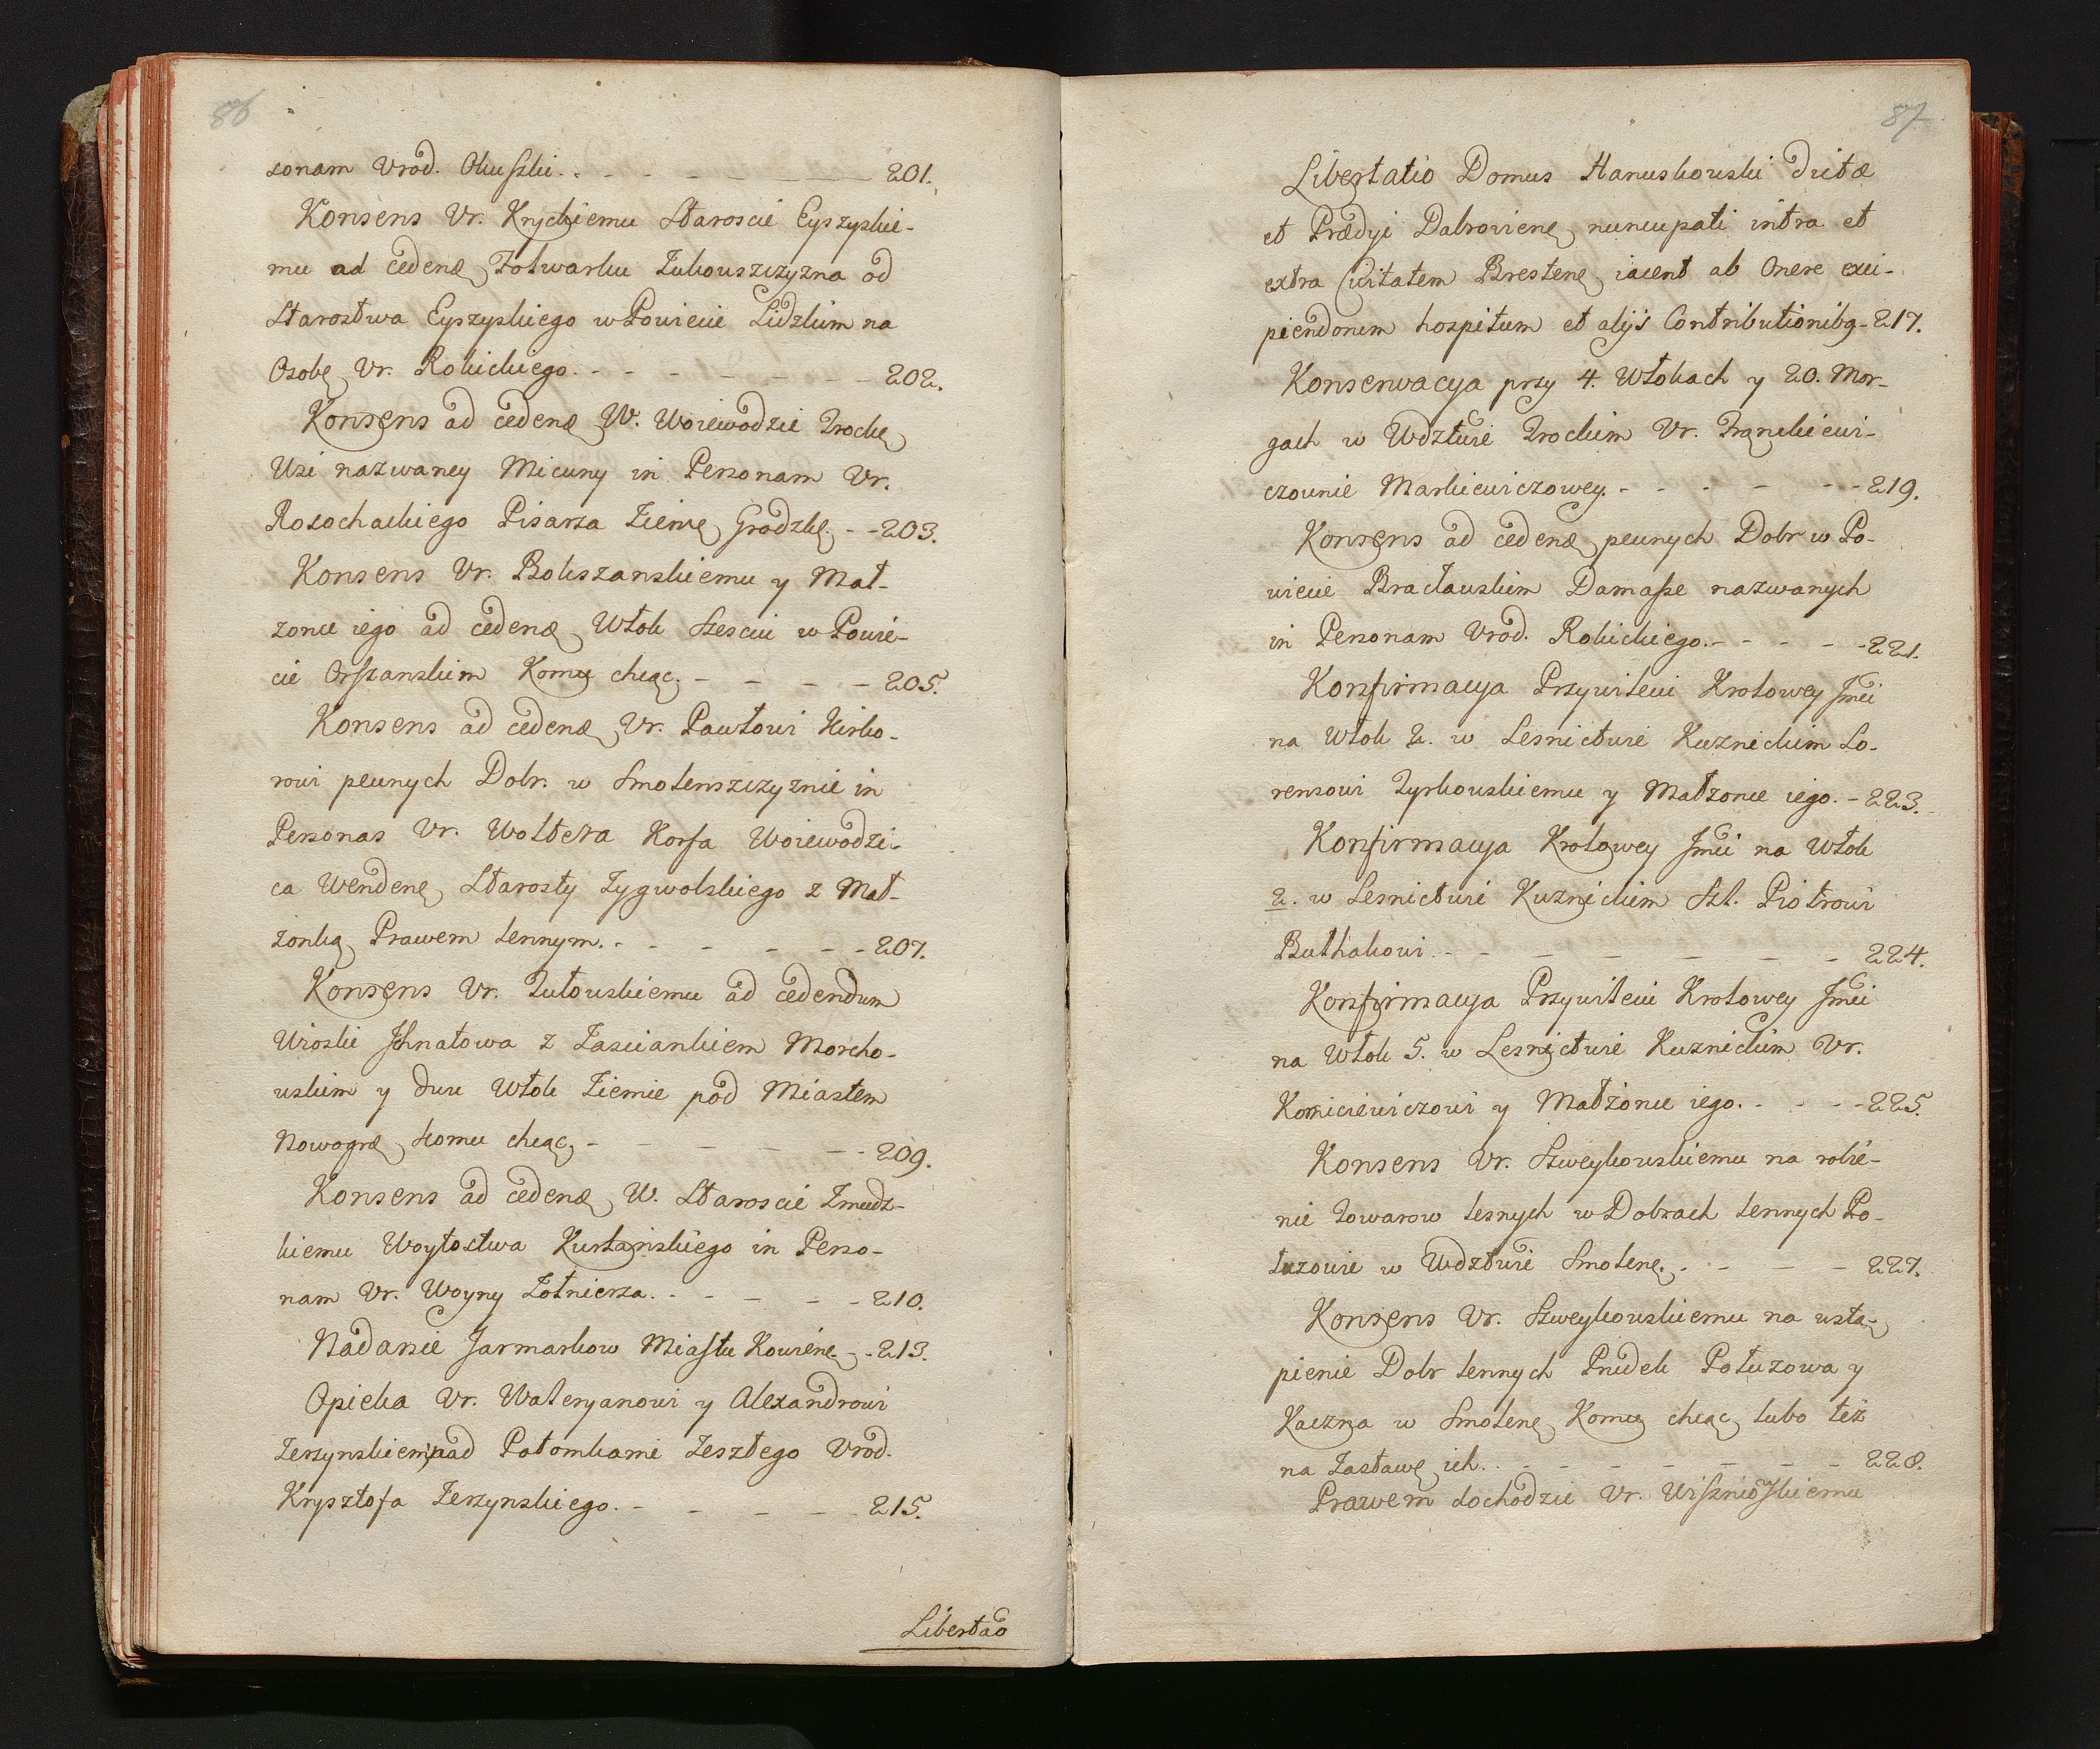 86
sonam Vrod. Okuszki. - - - - - - 201.
Konsens Vr. Kryckiemu Staroscie Eyszyskie-
mu ad cedenđ Folwarku Żukowszczyzna od
Starostwa Eyszyskiego w Powiecie Lidzkim na
Osobę Vr. Rokickiego. - - - - - - 202.
Konsens ad cedenđ W. Woiewodzie Trockie
Wsi nazwaney Micuny in Personam Vr.
Rosochackiego Pisarza Ziemę Grodzkię. - - 203.
Konsens Vr. Bokszanskiemu y Mał-
zonce iego ad cedenđ Włok Szesciu w Powie-
cie Orszanskim Komu chcąc. - - - - 205.
Konsens ad cedenđ Vr. Pawłowi Kirko-
rowi pewnych Dobr. w Smolenszczyznie in
Personas Vr. Woltera Korfa Woiewodzi-
ca Wendenę Starosty Zygwolskiego z Mał-
żonką Prawem Lennym. - - - - - 207.
Konsens Vr. Tutowskiemu ad cedendum
Wioski Jhnatowa z Zasciankiem Morcho-
wskim y dwu Włok Ziemie pod Miastem
Nowogrę komu chcąc, - - - - - 209.
Konsens ad cedenđ W. Staroscie Zmudz-
kiemu Woytostwa Kurtanskiego in Perso-
nam Vr. Woyny Żołnierza. - - - - - 210.
Nadanie Jarmarkow Miastu Kowienę. - 213.
Opieka Vr. Waleryanowi y Alexandrowi
Zerzynskiem nad Potomkami Zeszłego Vrod.
Krysztofa Zerzynskiego. - - - - - 215.
Libertao
87
Libertatio Domus Hanuskowski dictæ
et Prædyi Dabrovienę nuncupati intra et
extra Civitatem Brestenę iacent ab Onere exci-
piendorum hospitum et alijs Contributionibg - 217.
Konserwacya przy 4. Włokach y 20. Mor-
gach w Wdztwie Trockim Vr. Frąnckiewi-
czownie Markiewiczowey. - - - - - 219.
Konsens ad cedenđ pewnych Dobr w Po-
wiecie Bracławskim Damasze nazwanych
in Personam Vrod. Rokickiego. - - - - 221.
Konfirmacya Przywileiu Krolowey Jmći
na Włok 2. w Lesnictwie Kuznickim Lo-
rensowi Tyrkowskiemu y Małzonce iego. - 223.
Konfirmacya Krolowey Jmći na Włok
2. w Lesnictwie Kuznickim Szl. Piotrowi
Buthakowi. - - - - - - - 224.
Konfirmacya Przywileiu Krolowey Jmći
na Włok 5. w Lesnictwie Kuznickim Vr.
Komiciewiczowi y Małżonce iego. - - - 225.
Konsens Vr. Szweykowskiemu na robie-
nie Towarow lesnych w Dobrach lennych Po-
łuzowie w Wdztwie Smolenę. - - - - 227.
Konsens Vr. Szweykowskiemu na ustą-
pienie Dobr lennych Prudek Połuzowa y
Kaczna w Smolenę Komu chcąc lubo też
na Zastawę ich. - - - - - - - 228.
Prawem dochodzić Vr. Wiszniowskiemu